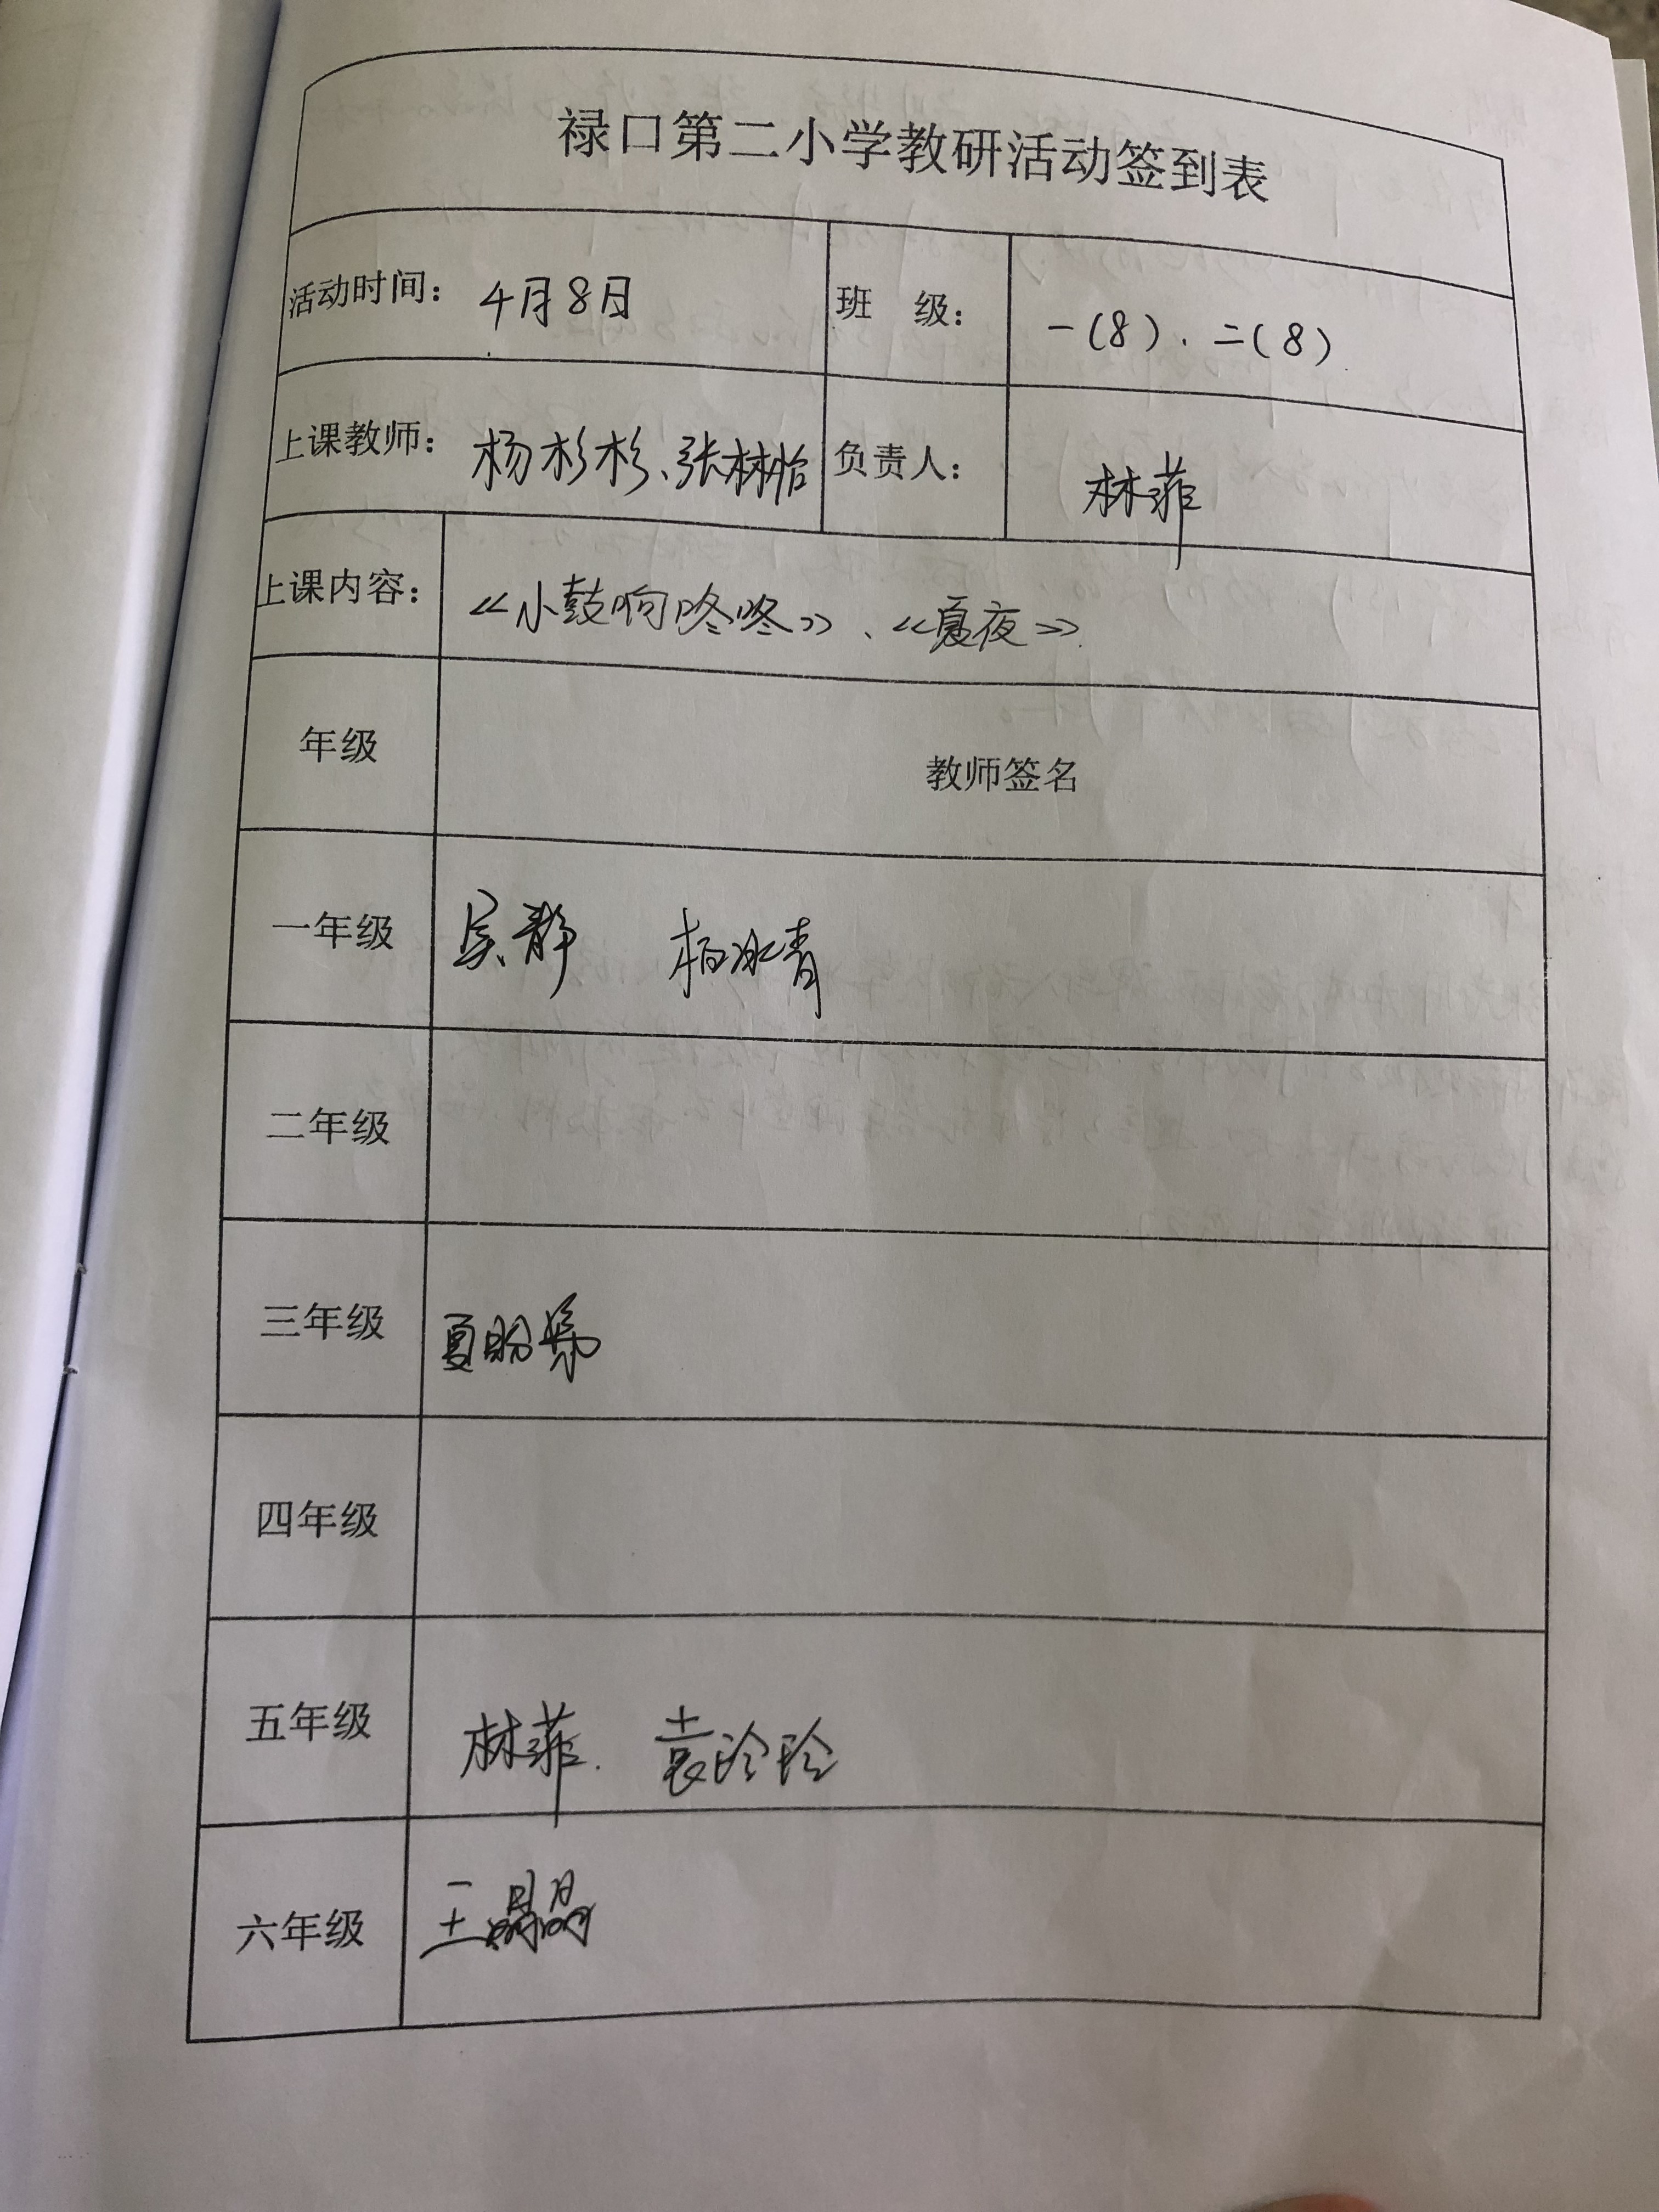 禄口第二小学教研活动签到表
活动时间： 4月8日 班 级： 一(8)、二(8)
上课教师： 杨杉杉、张林怡 负责人： 林菲
上课内容： 《小鼓响咚咚》、《夏夜》
年级 教师签名
一年级 吴静 柏冰青
二年级
三年级 夏盼
四年级
五年级 林菲. 袁玲玲
六年级 王晶晶